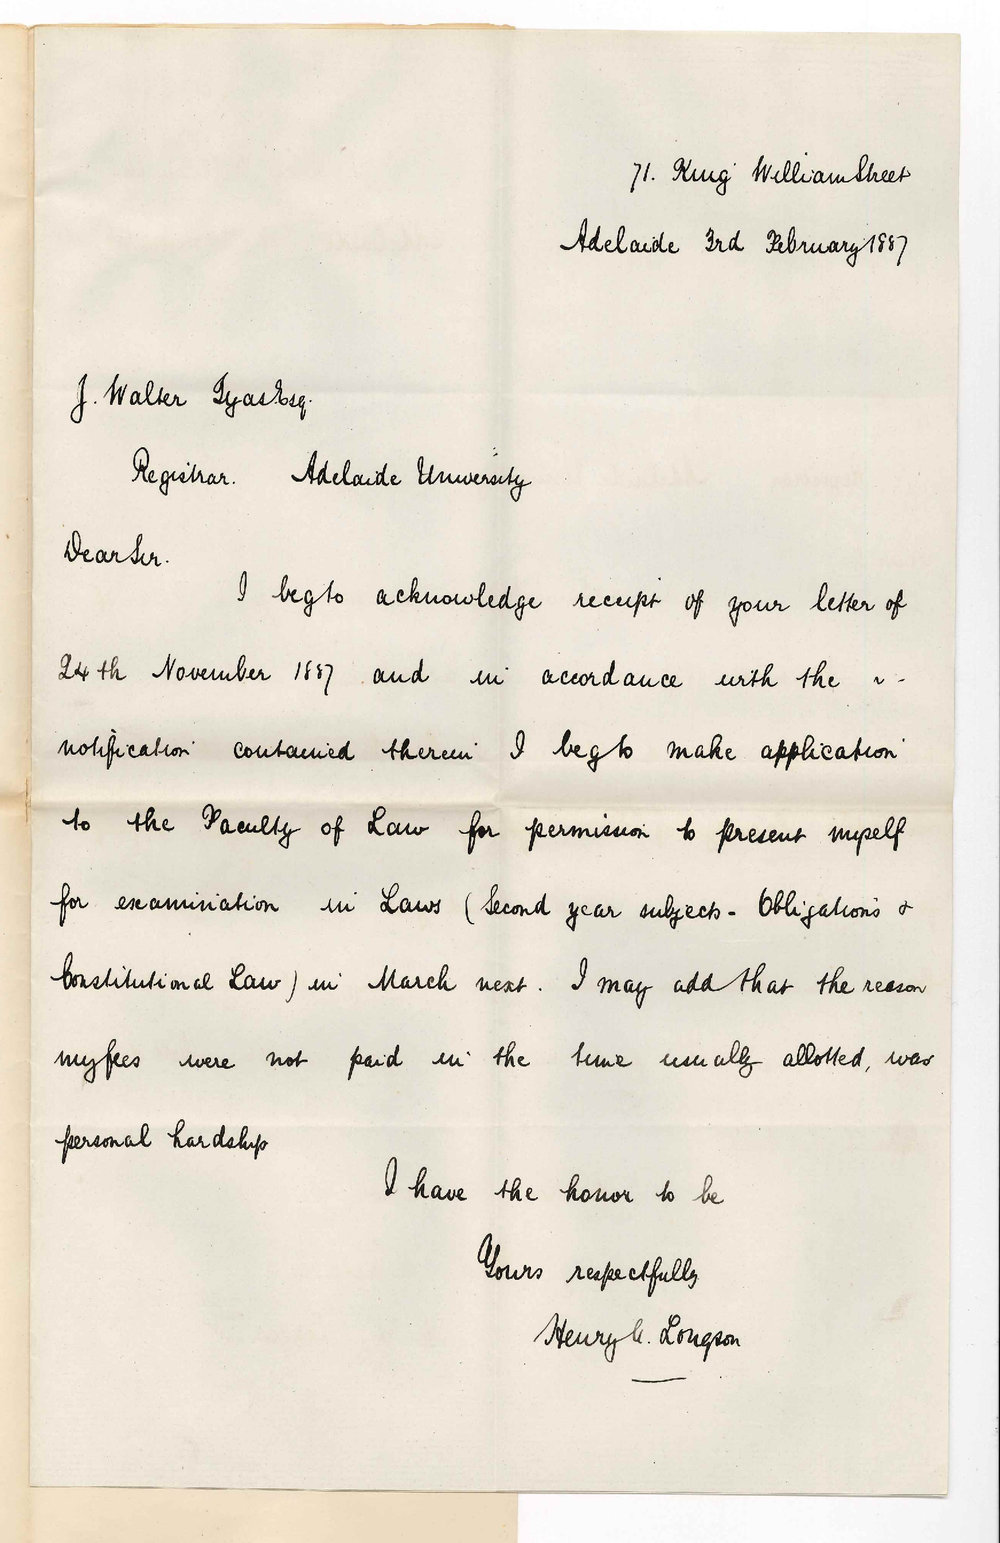 71. King William Street
Adelaide 3rd February 1887
J. Walter Tyas Esq.
Registrar. Adelaide University
Dear Sir.
I beg to acknowledge receipt of your letter of
24th November 1887 and in accordance with the
notification contained therein I beg to make application
to the Faculty of Law for permission to present myself
for examination in Laws (Second year subjects - Obligations &
Constitutional Law) in March next. I may add that the reason
my fees were not paid in the time usually allotted, was
personal hardship
I have the honor to be
Yours respectfully
Henry C. Longson